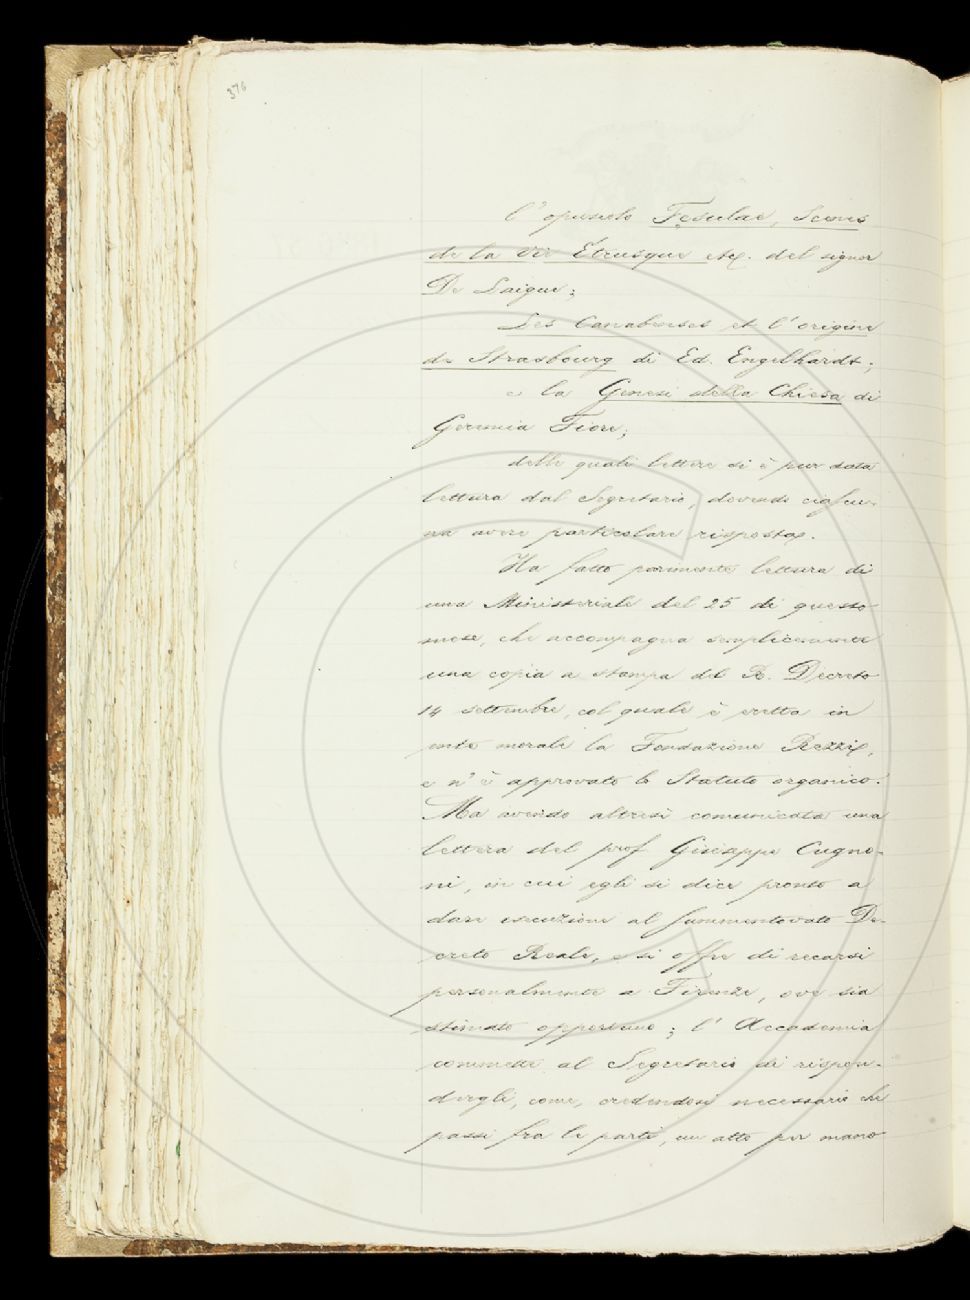 376
l'opuscolo Fęsulae, Scenes
de la Vie Étrusque etc. del signor
De Laigue;
Les Canabenses et l'origine
de Strasbourg di Ed. Engelhardt;
e la Genesi della Chiesa di
Geremia Fiore;
delle quali lettere si è pur data
lettura dal Segretario, dovendo ciascu-
na avere particolare risposta.
Ha fatto parimente lettura di
una Ministeriale del 25 di questo
mese, che accompagna semplicemente
una copia a stampa del R. Decreto
14 settembre, col quale è eretta in
ente morale la Fondazione Rezzi,
e n'è approvato lo Statuto organico.
Ma avendo altresì comunicata una
lettera del prof Giuseppe Cugno-
ni, in cui egli si dice pronto a
dare esecuzione al summentovato De-
creto Reale, e si offre di recarsi
personalmente a Firenze, ove sia
stimato opportuno; l'Accademia
commette al Segretario di rispon-
dergli, come, credendosi necessario che
passi fra le parti, un atto per mano